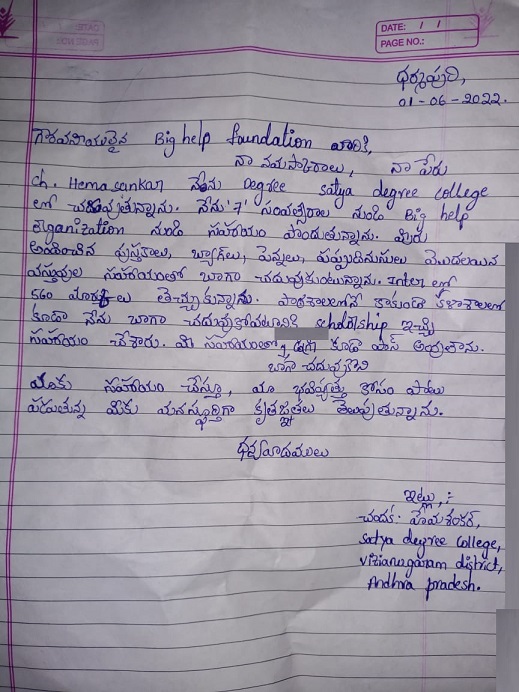 DATE: / /
PAGE NO.:
ధర్మపురి,
01-06-2022.
గౌరవనీయులైన Big help foundation వారికి,
నా నమస్కారాలు, నా పేరు
ch. Hemasankar నేను Degree satya degree college
లో చదువుతున్నాను. నేను '7' సంవత్సరాల నుండి Big help
organization నుండి సహాయం పొందుతున్నాను. మీరు
అందించిన పుస్తకాలు, బ్యాగ్‌లు, పెన్నులు, పప్పుదినుసులు మొదలయిన
వస్తువుల సహాయంతో బాగా చదువుకుంటున్నాను. Inter లో
560 మార్కులు తెచ్చుకున్నాను. పాఠశాలలోనే కాకుండా కళాశాలలో
కూడా నేను బాగా చదువుకోవటానికి scholarship ఇచ్చి
సహాయం చేశారు. మీ సహాయంతో కూడా పాస్ అయ్యాను.
బాగా చదువుకొని
మాకు సహాయం చేస్తూ, మా భవిష్యత్తు కోసం పాటు
పడుతున్న మీకు మనస్ఫూర్తిగా కృతజ్ఞతలు తెలుపుతున్నాను.
ధన్యవాదములు
ఇట్లు,:
చందక. హేమశంకర్,
satya degree college,
vizianagaram district,
Andhra pradesh.